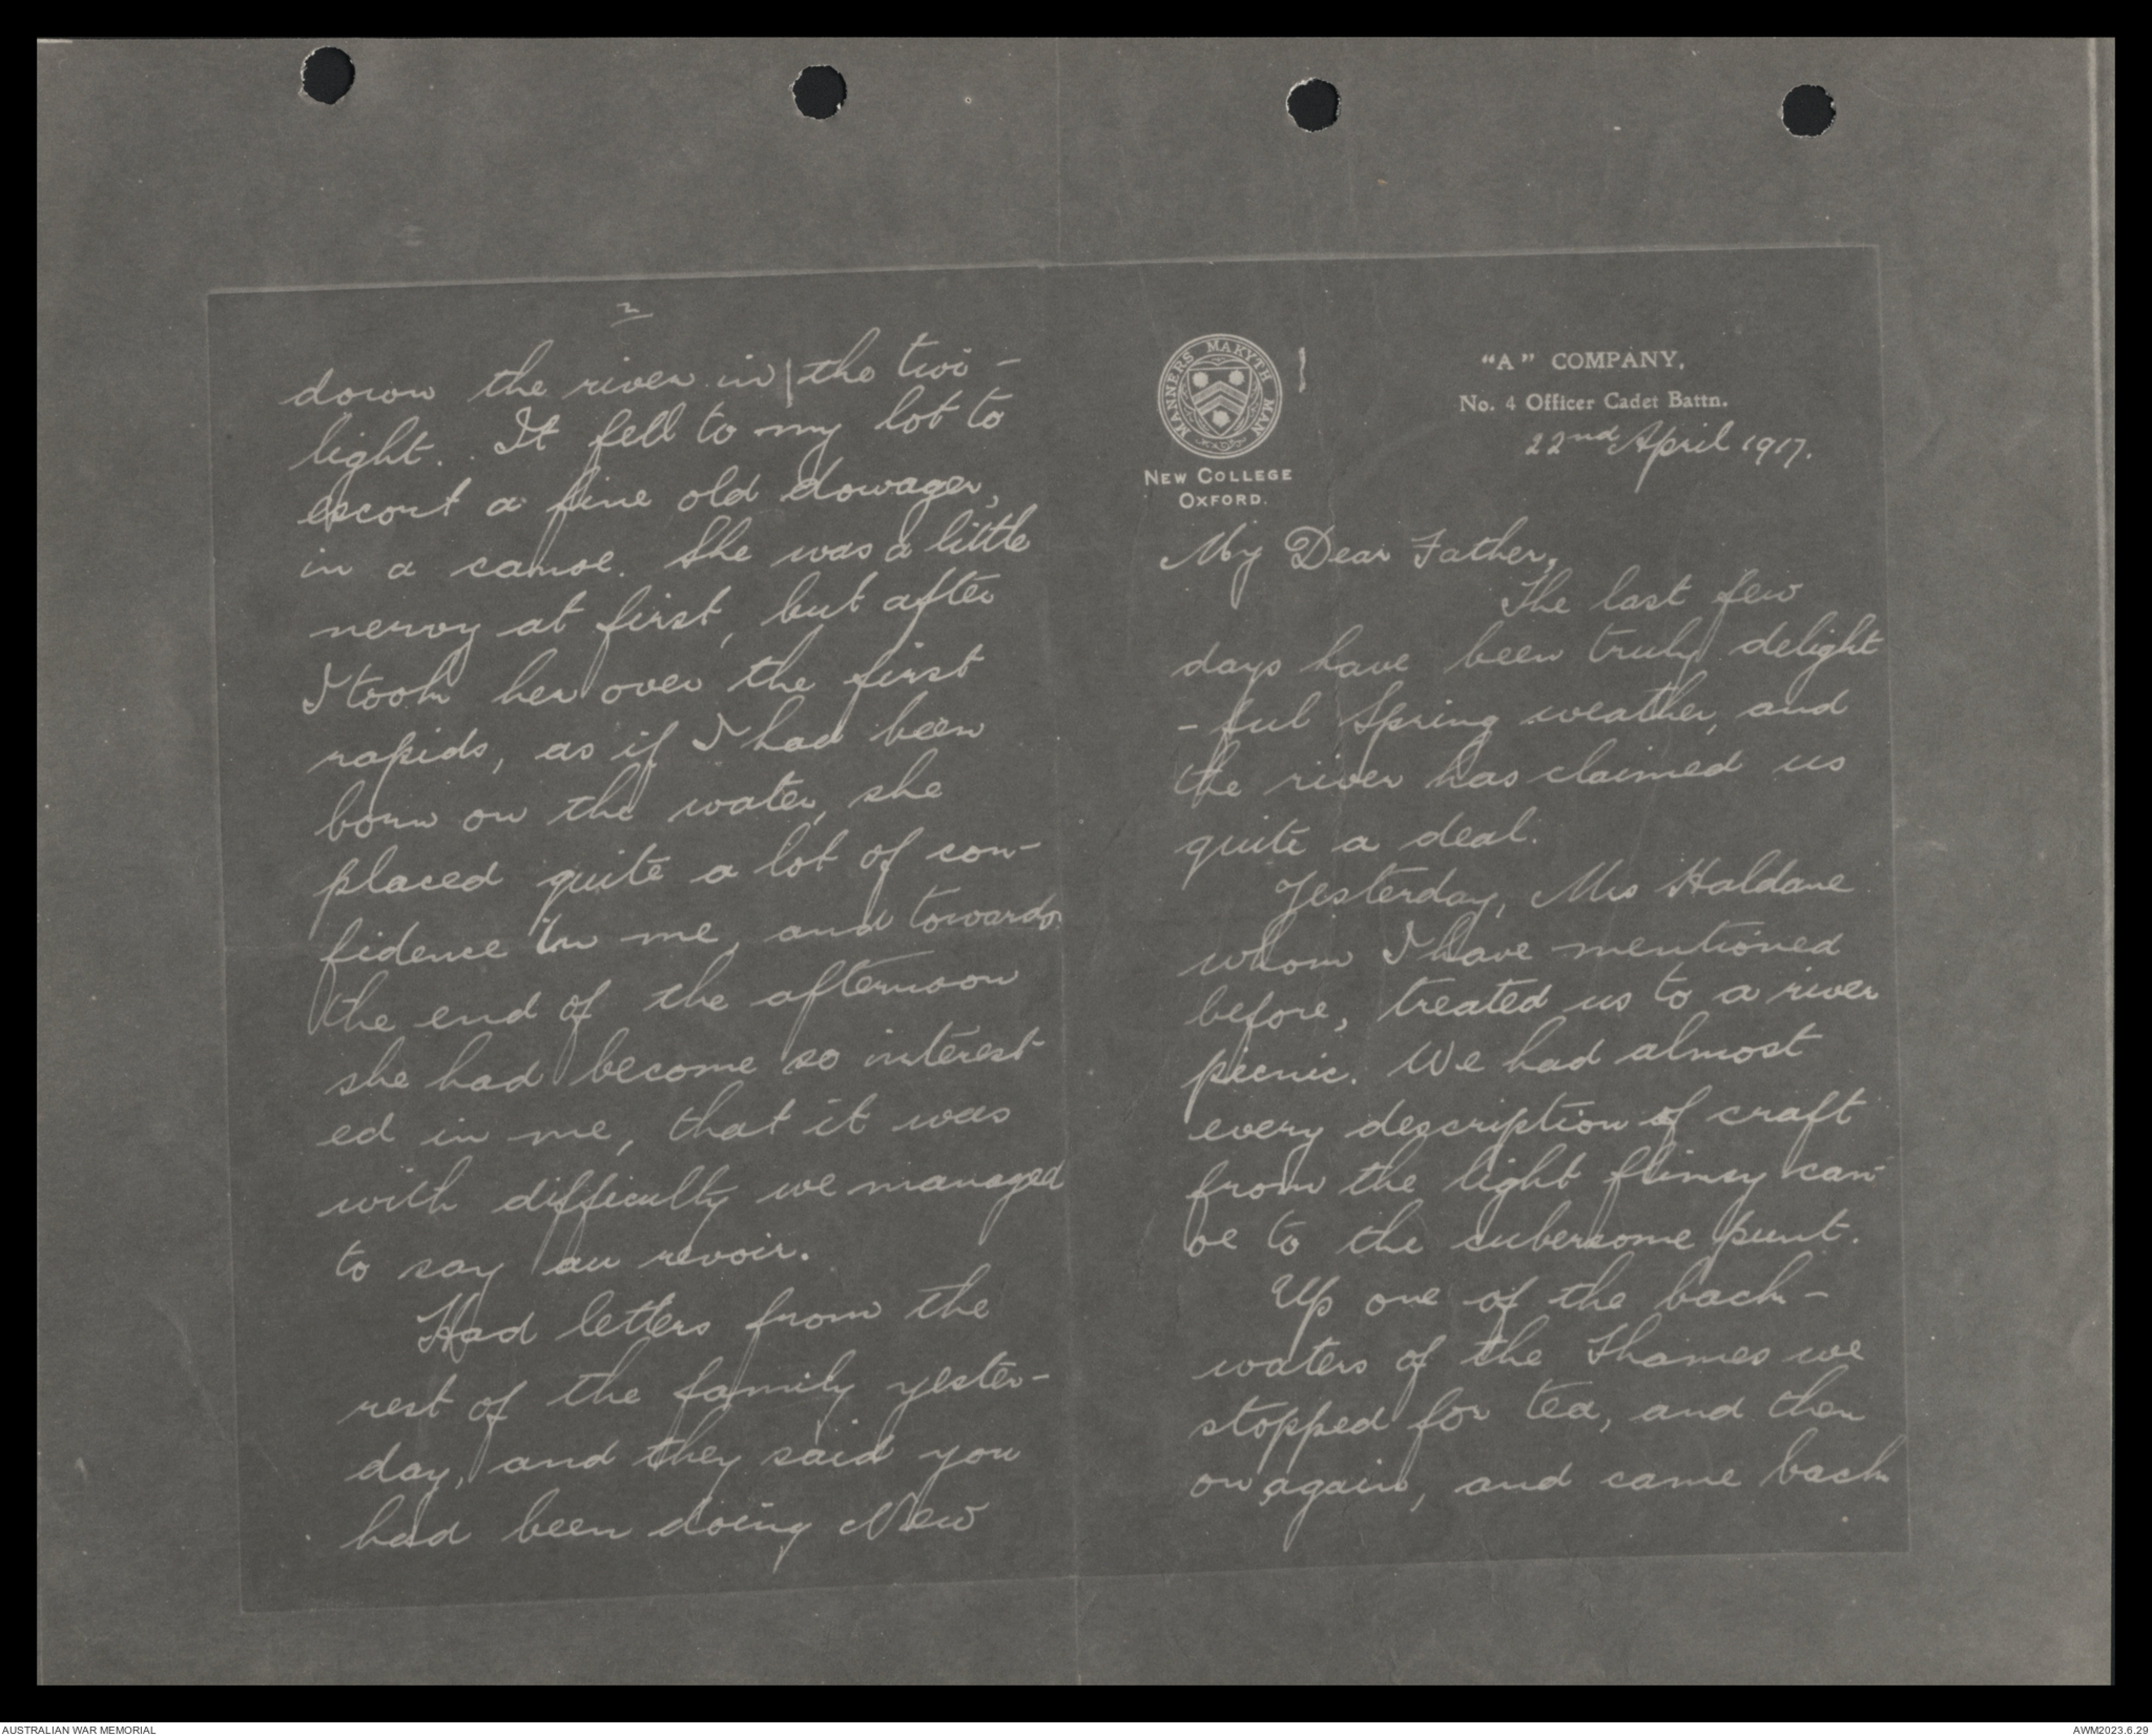 MANNERS MAKYTH MAN
NEW COLLEGE
OXFORD.
1
"A" COMPANY,
No. 4 Officer Cadet Battn.
22nd April 1917.
My Dear Father,
The last few
days have been truly delight
-ful Spring weather, and
the river has claimed us
quite a deal.
Yesterday, Mrs Haldane
whom I have mentioned
before, treated us to a river
picnic. We had almost
every description of craft
from the light flimsy can-
oe to the cubersome punt.
Up one of the back-
waters of the Thames we
stopped for tea, and then
on again, and came back
2
down the river in the twi-
light. It fell to my lot to
escort a fine old dowager,
in a canoe. She was a little
nervy at first, but after
I took her over the first
rapids, as if I had been
born on the water, she
placed quite a lot of con-
fidence in me, and towards
the end of the afternoon
she had become so interest-
ed in me, that it was
with difficulty we managed
to say au revoir.
Had letters from the
rest of the family yester-
day, and they said you
had been doing New
AUSTRALIAN WAR MEMORIAL
AWM2023.6.29